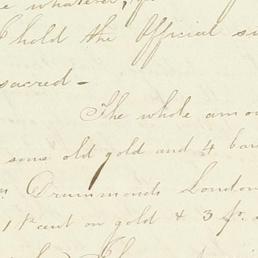 whatever,
I hold the Official
sacred -
The whole amo
sons old gold and 4 ba
Drummonds London
1 P cent on gold & 3